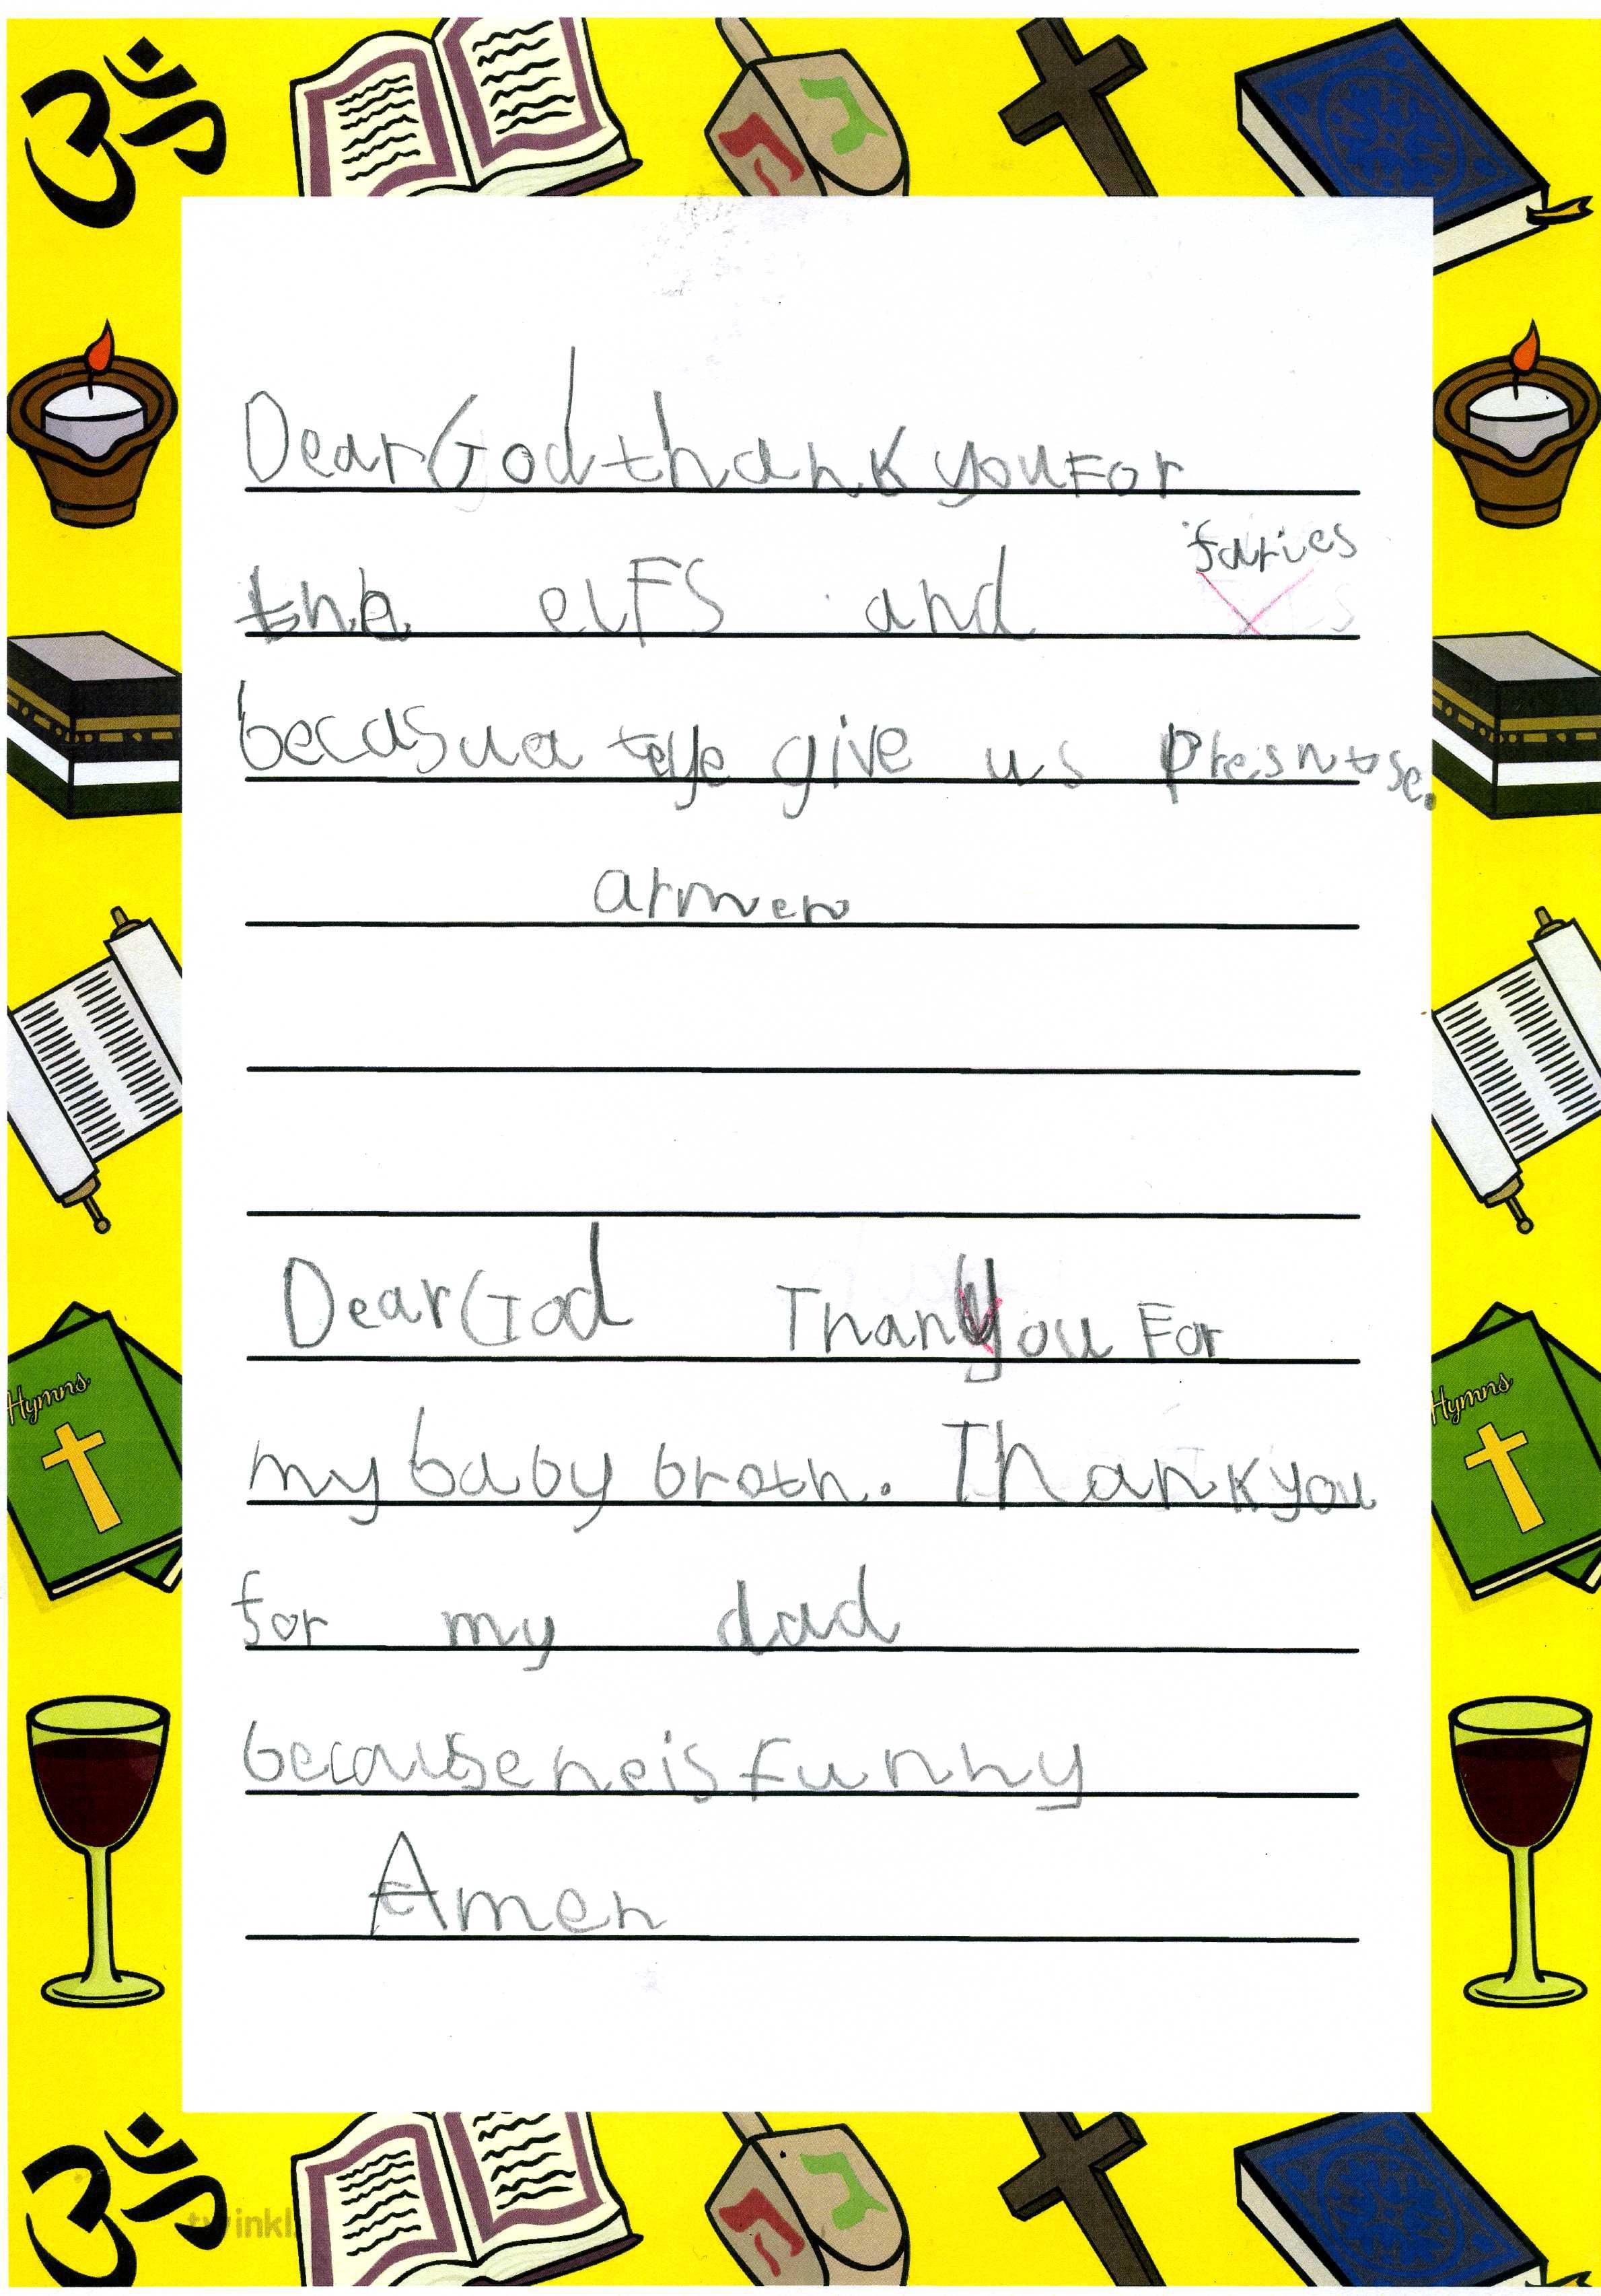 Dear God thank you For
faries
the elFS and
becasua teye give us presntse.
armen
Dear God Thank you For
my baby broth. Thank you
for my dad
because he is funny
Amen
Hymns
Hymns
twinkl